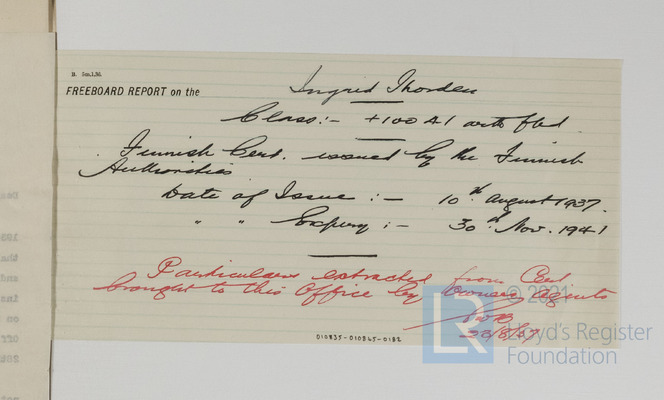 B. 5m.1,36.
FREEBOARD REPORT on the Ingrid Thorden
Class:- +100A1 with fbd.
Finnish Cert. issued by the Finnish
Authorities
Date of Issue :- 10th August 1937.
" " Expiry :- 30th Nov. 1941
Particulars extracted from Cert
brought to this Office by Owners Agents
© 2021
Lloyd's Register
Foundation
LR
010835-010845-0182